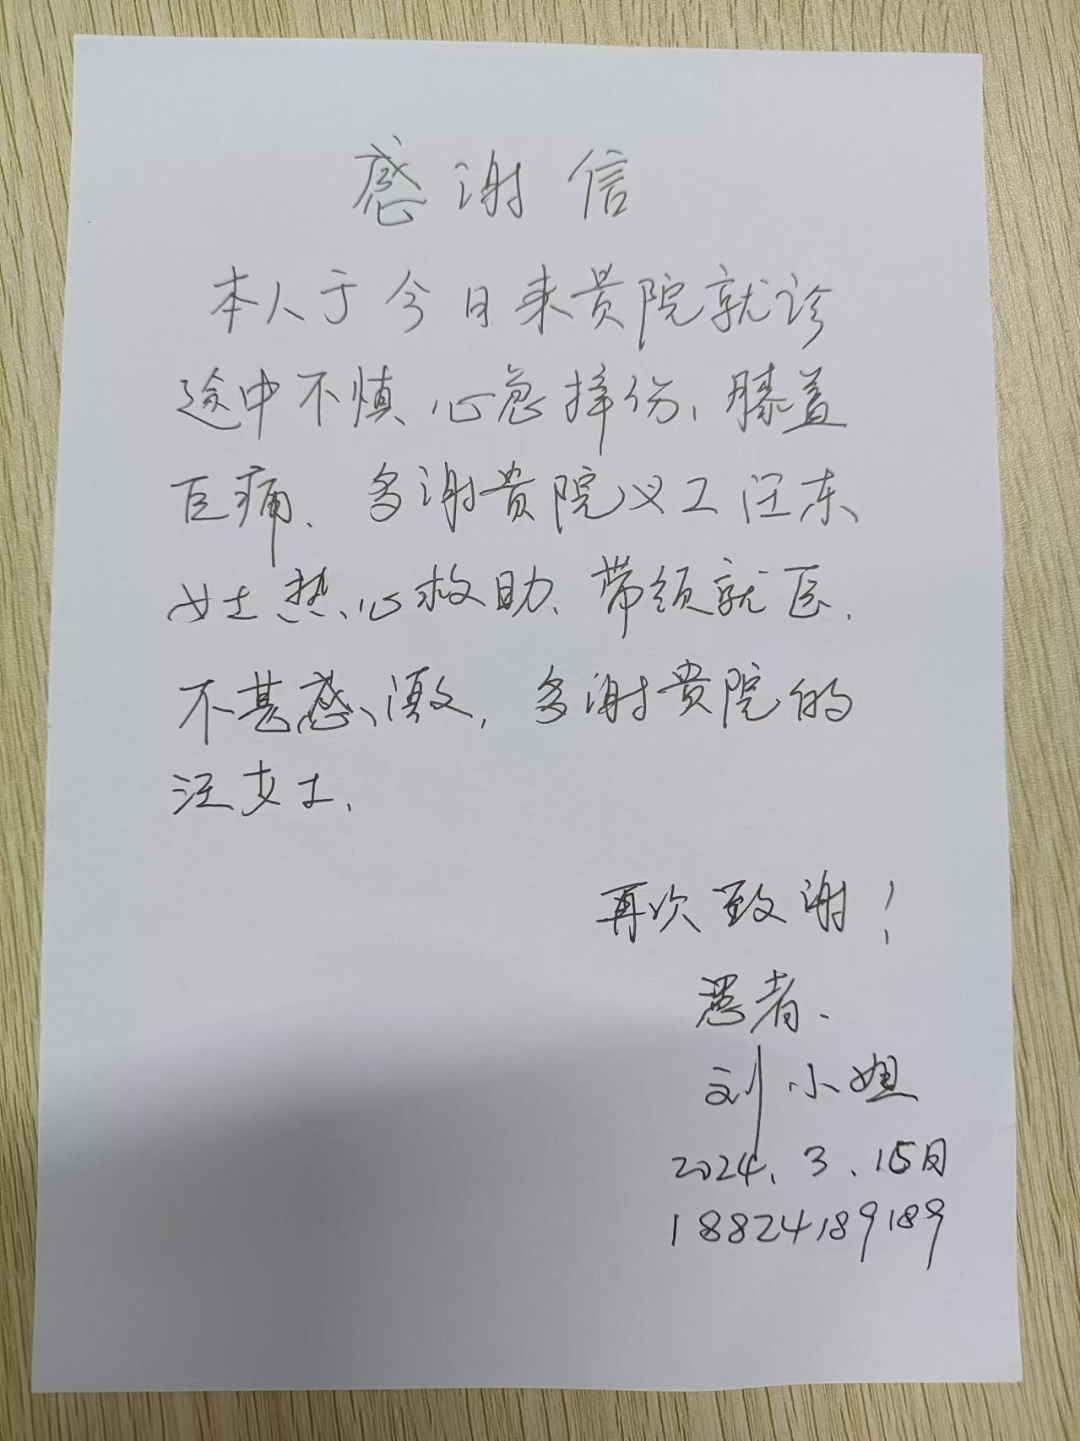 感谢信
本人于今日来贵院就诊
途中不慎、心急摔伤、膝盖
巨痛、多谢贵院义工汪东
女士热心救助、带领就医.
不甚感激, 多谢贵院的
汪女士、
再次致谢!
患者、
刘小姐
2024.3.15日
18824189189